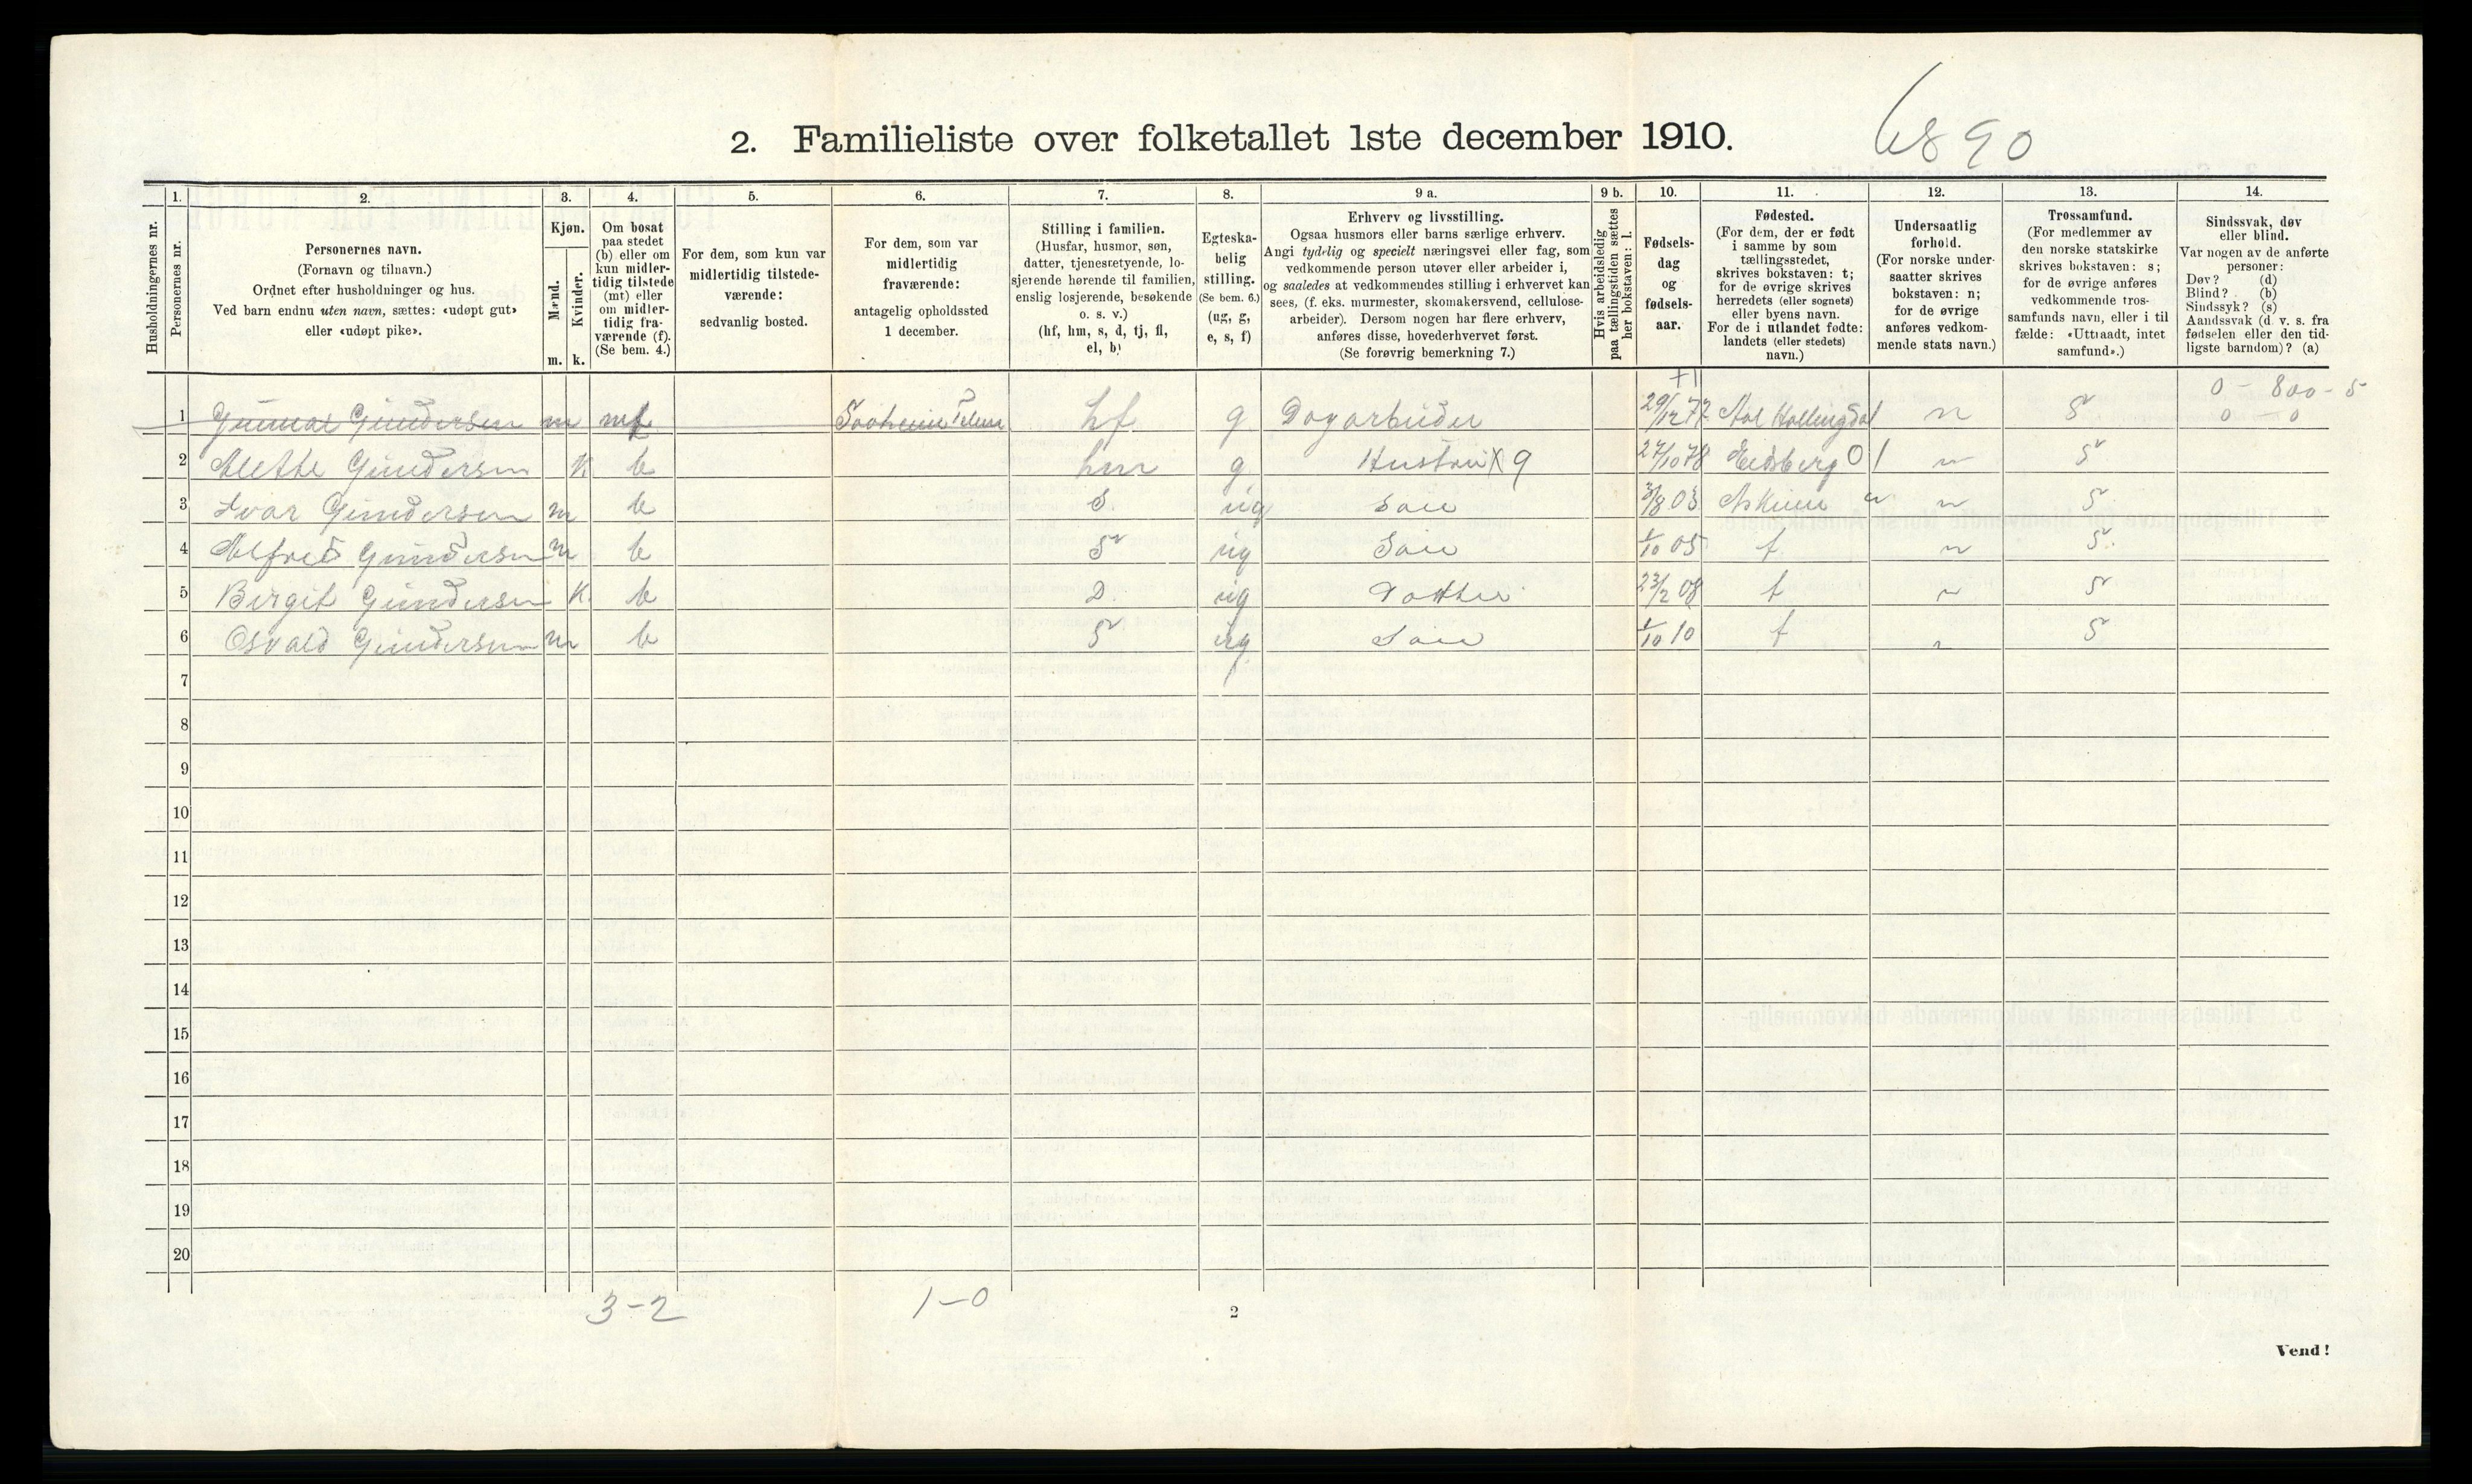 6890
2. Familieliste over folketallet 1ste december 1910.
1. 2. 3. 4. 5. 6. 7. 8. 9 a. 9 b. 10. 11. 12. 13. 14.
Husholdningernes nr.
Personernes nr.
Personernes navn.
(Fornavn og tilnavn.)
Ordnet efter husholdninger og hus.
Ved barn endnu uten navn, sættes: «udøpt gut»
eller «udøpt pike».
Kjøn.
Mænd.
Kvinder.
m. k.
Om bosat
paa stedet
(b) eller om
kun midler-
tidig tilstede
(mt) eller
om midler-
tidig fra-
værende (f).
(Se bem. 4.)
For dem, som kun var
midlertidig tilstede-
værende:
sedvanlig bosted.
For dem, som var
midlertidig
fraværende:
antagelig opholdssted
1 december.
Stilling i familien.
(Husfar, husmor, søn,
datter, tjenestetyende, lo-
sjerende hørende til familien,
enslig losjerende, besøkende
o. s. v.)
(hf, hm, s, d, tj, fl,
el, b)
Egteska-
belig
stilling.
(Se bem. 6.)
(ug, g,
e, s, f)
Erhverv og livsstilling.
Ogsaa husmors eller barns særlige erhverv.
Angi tydelig og specielt næringsvei eller fag, som
vedkommende person utøver eller arbeider i,
og saaledes at vedkommendes stilling i erhvervet kan
sees, (f. eks. murmester, skomakersvend, cellulose-
arbeider). Dersom nogen har flere erhverv,
anføres disse, hovederhvervet først.
(Se forøvrig bemerkning 7.)
Hvis arbeidsledig
paa tællingstiden sættes
her bokstaven: l.
Fødsels-
dag
og
fødsels-
aar.
Fødested.
(For dem, der er født
i samme by som
tællingsstedet,
skrives bokstaven: t;
for de øvrige skrives
herredets (eller sognets)
eller byens navn.
For de i utlandet fødte:
landets (eller stedets)
navn.)
Undersaatlig
forhold.
(For norske under-
saatter skrives
bokstaven: n;
for de øvrige
anføres vedkom-
mende stats navn.)
Trossamfund.
(For medlemmer av
den norske statskirke
skrives bokstaven: s;
for de øvrige anføres
vedkommende tros-
samfunds navn, eller i til
fælde: «Uttraadt, intet
samfund».)
Sindssvak, døv
eller blind.
Var nogen av de anførte
personer:
Døv? (d)
Blind? (b)
Sindssyk? (s)
Aandssvak (d. v. s. fra
fødselen eller den tid-
ligste barndom)? (a)
+1 0 - 800 - 5
1 Gunnar Gundersen m mf Saaheim Telem hf g Dagarbeider 29/12 77 Aal Hallingdal n S 0 - 0
2 Alethe Gundersen K b hm g Hustru X 9 27/10 78 Eidsberg 01 n S
3 Ivar Gundersen m b S ug Søn 3/8 03 Askim n S
4 Alfred Gundersen m b S ug Søn 1/10 05 t n S
5 Birgit Gundersen K. b D. ug Datter 23/2 08 t n S
6 Osvald Gundersen m b S ug Søn 1/10 10 t n S
7
8
9
10
11
12
13
14
15
16
17
18
19
20
3-2 1-0
2
Vend!